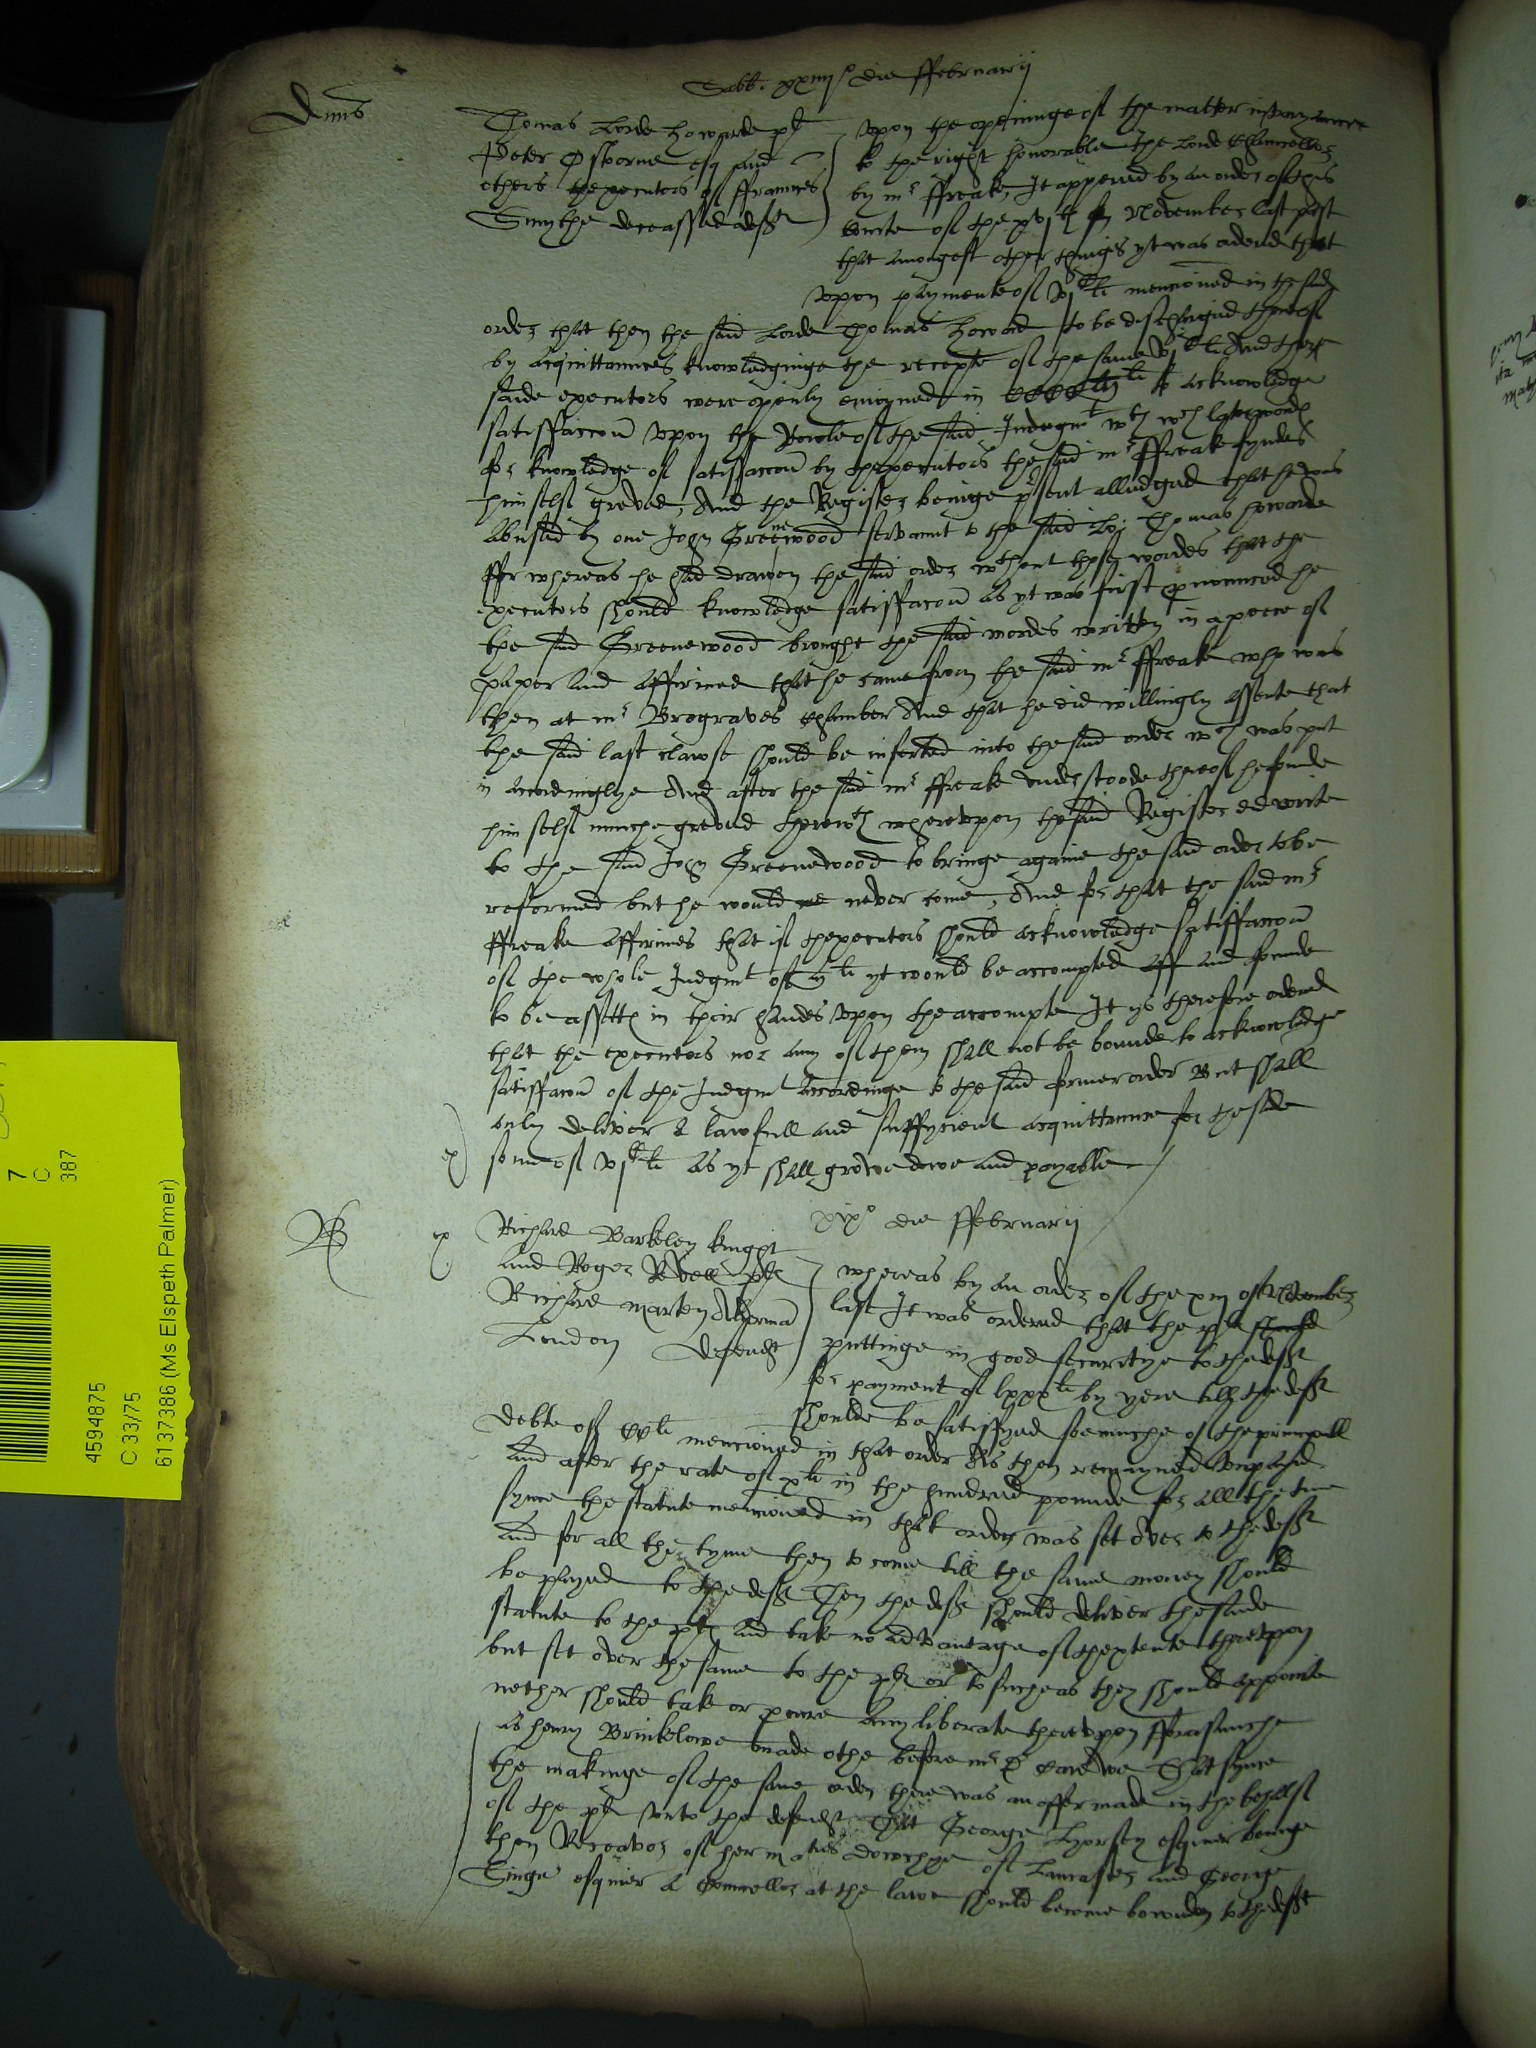 Sabb. xxiiij° die ffebruarij
Thomas Lorde Howarde plt
Peter Osborne esq and
others thexecutors of ffraunces
Smythe deceassed defts
Upon the openinge of the matter
to the right honorable the Lorde Chauncellor
by mr ffreake, It appered by an order of this
courte of the of November last past
that amongest other thinges yt was ordered that
upon paymente of li mencioned in the said
order that then the said Lorde Thomas Howard to be discharged thereof
by acquittaunces knowledginge the receipte of the same li And the
saide executors were openly enioyned in li to acknowledge
satisffaccon upon the Rowle of the said Judgmt wth wch later wordes
for knowledge of satisfaccon by thexecutors the said mr ffreak fyndes
him self greved, And the Register beinge psent alledged that he was
abused by one John Greenewood servaunt to the said Lo: Thomas Howarde
ffor whereas he had drawen the said order wthout these wordes that the
executors should knowledge satisffacon as yt was first pnounced he
the said Greenewood brought the said wordes written in a peece of
paper and affirmed that he came from the said mr ffreake who was
then at mr Brograves chamber And that he did willingly assente that
the said last clawse should be inserted into the said order wch was put
in accordinglye And after the said mr ffreake understoode thereof he founde
him self muche greved therewth whereupon the said Register did write
to the said John Greenewood to bringe againe the said order to be
reformed but he would never come, And for that the said mr
ffreake affirmes that if thexecutors should acknowledge satisffaccon
of the whole Judgmt of li yt would be accompted and founde
to be assetts in their handes upon the accompte It ys therefore ordered
that the executors nor any of them shall not be bounde to acknowledge
satisfacon of the Judgmt accordinge to the said former order But shall
only deliver a lawfull and suffycient acquittaunce for the saide
some of li as yt shall growe dewe and payable
ex
xixo die ffebruarij
ex
Richard Barkeley knight
and Roger plts
Richard Marten Alderman
London defendt
whereas by an order of the xiij of November
last It was ordered that the plts
puttinge in good securitye to the deft
for payment of lxxxli by yere till the deft
shoulde be satisfyed soe muche of the principall
debte of li mencioned in that order as then remayned unpayed
and after the rate of xli in the hundred pounde for all the time
synce the statute mencioned in that order was set over to the deft
and for all the tyme then to come till the same money should
be payed to the deft Then the deft should deliver the saide
statute to the plts and take no advantage of thextente thereupon
but set over the same to the plts or to suche as they should appointe
nether should take or pcure any liberate thereupon fforasmuche
as Henry Brinkelowe made othe before mr D Carewe That synce
the makinge of the same order there was an offer made in the behalf
of the plts unto the defendt That George Horsey esquier beinge
then Receavor of her maties Dowchye of Lancaster and George
Kinge esquier a Councellor at the lawe should become bounden to the deft
7
C
387
4594875
C 33/75
6137386 (Ms Elspeth Palmer)